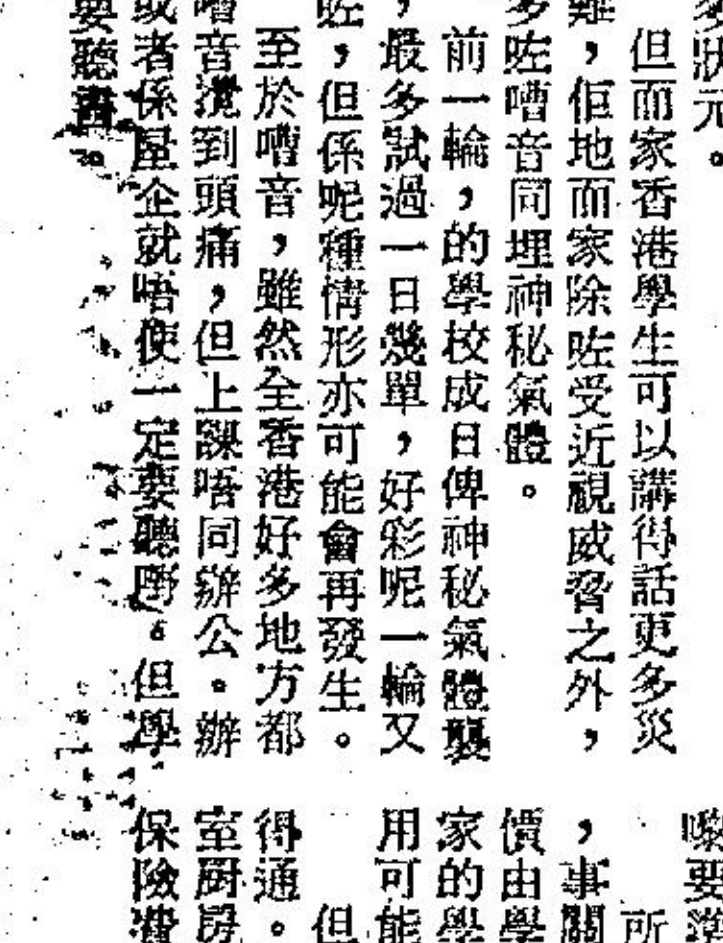 多狀元。
但而家香港學生可以講得話更多災
難,佢地而家除咗受近視威脅之外,
多咗嘈音同埋神秘氣體。
前一輪,的學校成日俾神秘氣體襲
,最多試過一日幾單,好彩呢一輪又
咗,但係呢種情形亦可能會再發生。
至於嘈音,雖然全香港好多地方都
嘈音攪到頭痛,但上課唔同辦公。辦
或者係屋企就唔使一定要聽嘢。但學
要聽書。
嚟要
所
,事關
價由學
家的學
用可能
但
得通。
室厨房
保險費